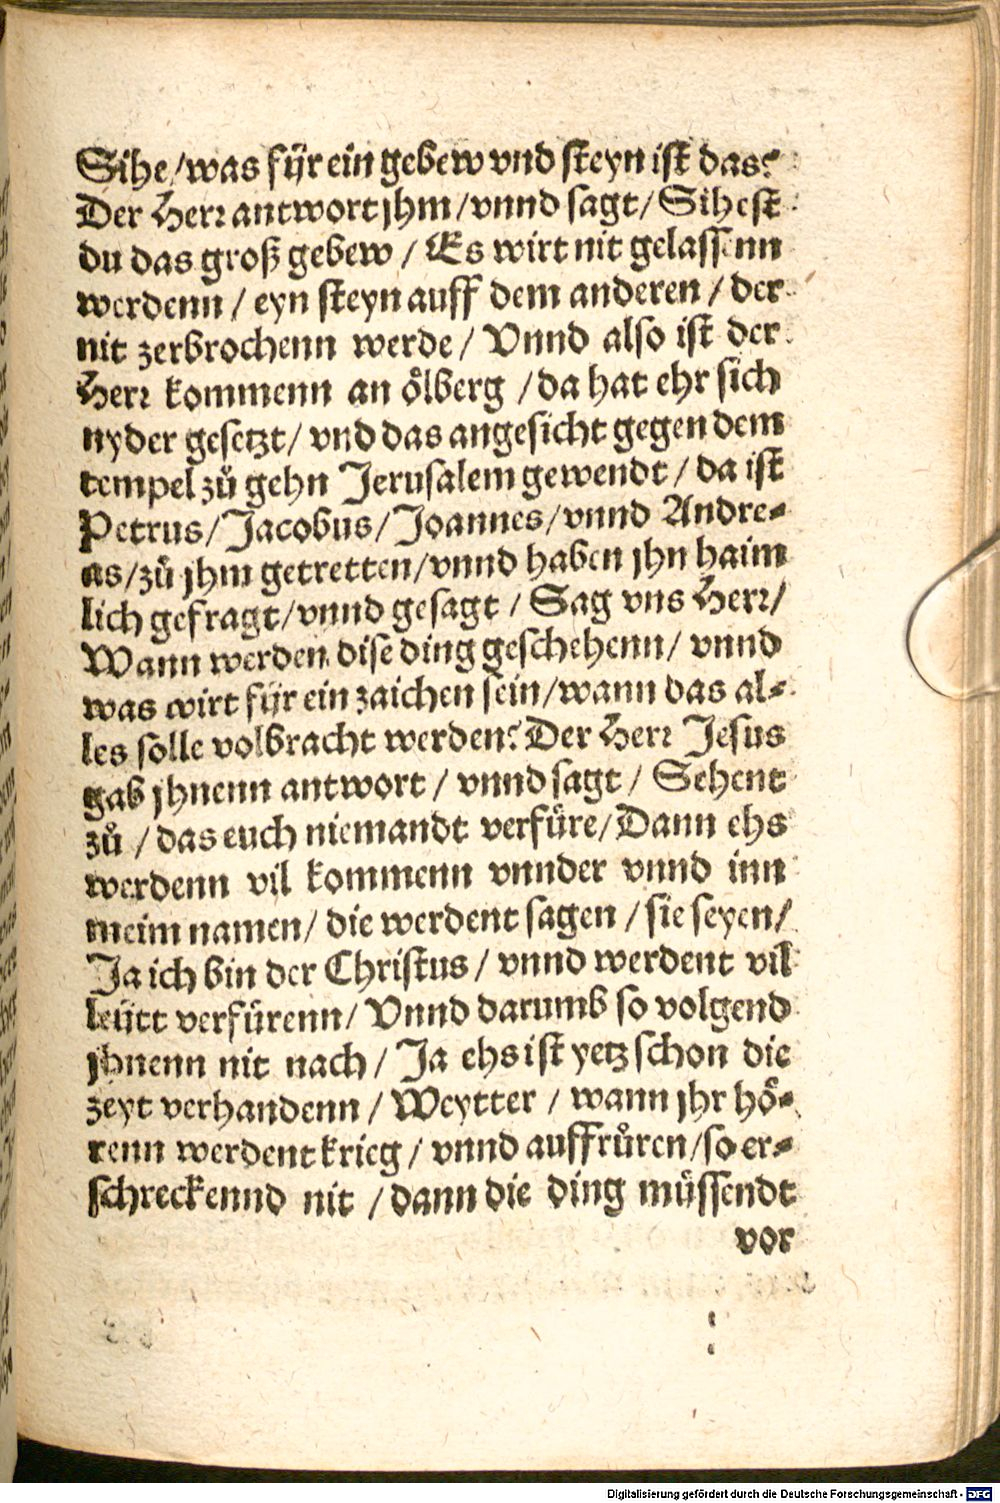 Sihe/was fÿr ein gebew vnd steyn ist das?
Der Herr antwort jhm/vnnd sagt/Sihest
du das groß gebew/Es wirt nit gelassenn
werdenn/eyn steyn auff dem anderen/der
nit zerbrochenn werde/Vnnd also ist der
Herr kommenn an ölberg/da hat ehr sich
nyder gesetzt/vnd das angesicht gegen dem
tempel zů gehn Jerusalem gewendt/da ist
Petrus/Jacobus/Joannes/vnnd Andre-
as/zů jhm getretten/vnnd haben jhn haim
lich gefragt/vnnd gesagt/Sag vns Herr/
Wann werden dise ding geschehenn/vnnd
was wirt fÿr ein zaichen sein/wann das al-
les solle volbracht werden? Der Herr Jesus
gab jhnenn antwort/vnnd sagt/Sehent
zů/das euch niemandt verfüre/Dann ehs
werdenn vil kommenn vnnder vnnd inn
meim namen/die werdent sagen/sie seyen/
Ja ich bin der Christus/vnnd werdent vil
leütt verfürenn/Vnnd darumb so volgend
jhnenn nit nach/Ja ehs ist yetz schon die
zeyt verhandenn/Weytter/wann jhr hö-
renn werdent krieg/vnnd auffrůren/so er-
schreckennd nit/dann die ding müssendt
vor
Digitalisierung gefördert durch die Deutsche Forschungsgemeinschaft - DFG